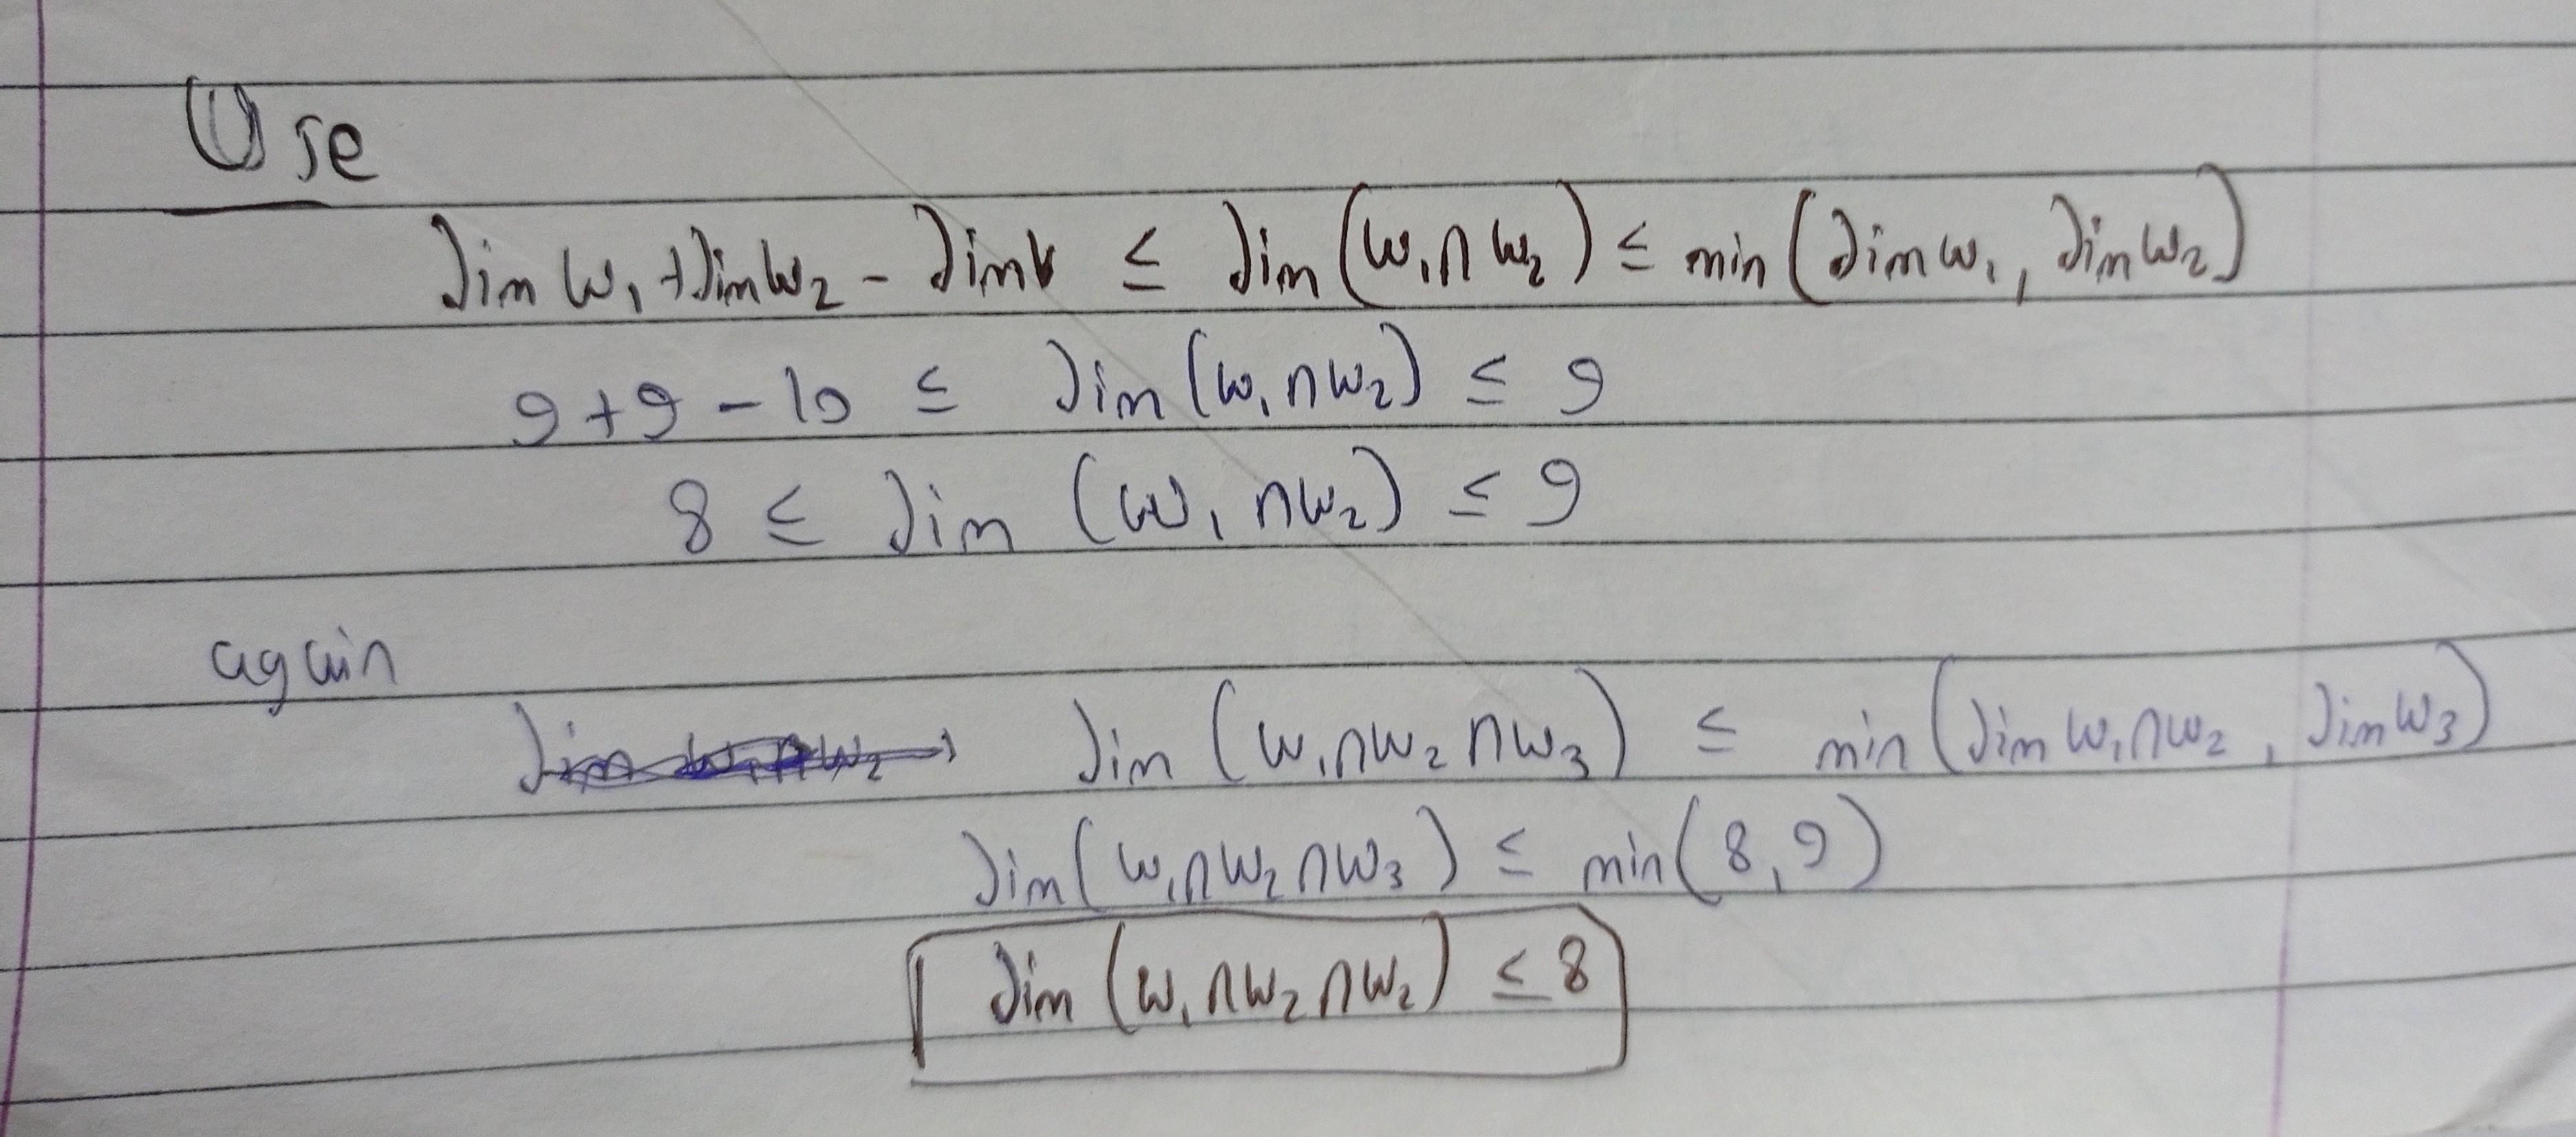 Use
dim W₁ + dim W₂ - dim V ≤ dim (W₁ ∩ W₂) ≤ min (dim W₁, dim W₂)
9 + 9 - 10 ≤ dim (W₁ ∩ W₂) ≤ 9
8 ≤ dim (W₁ ∩ W₂) ≤ 9
again
dim (W₁ ∩ W₂ ∩ W₃) ≤ min (dim W₁ ∩ W₂, dim W₃)
dim (W₁ ∩ W₂ ∩ W₃) ≤ min (8, 9)
dim (W₁ ∩ W₂ ∩ W₂) ≤ 8